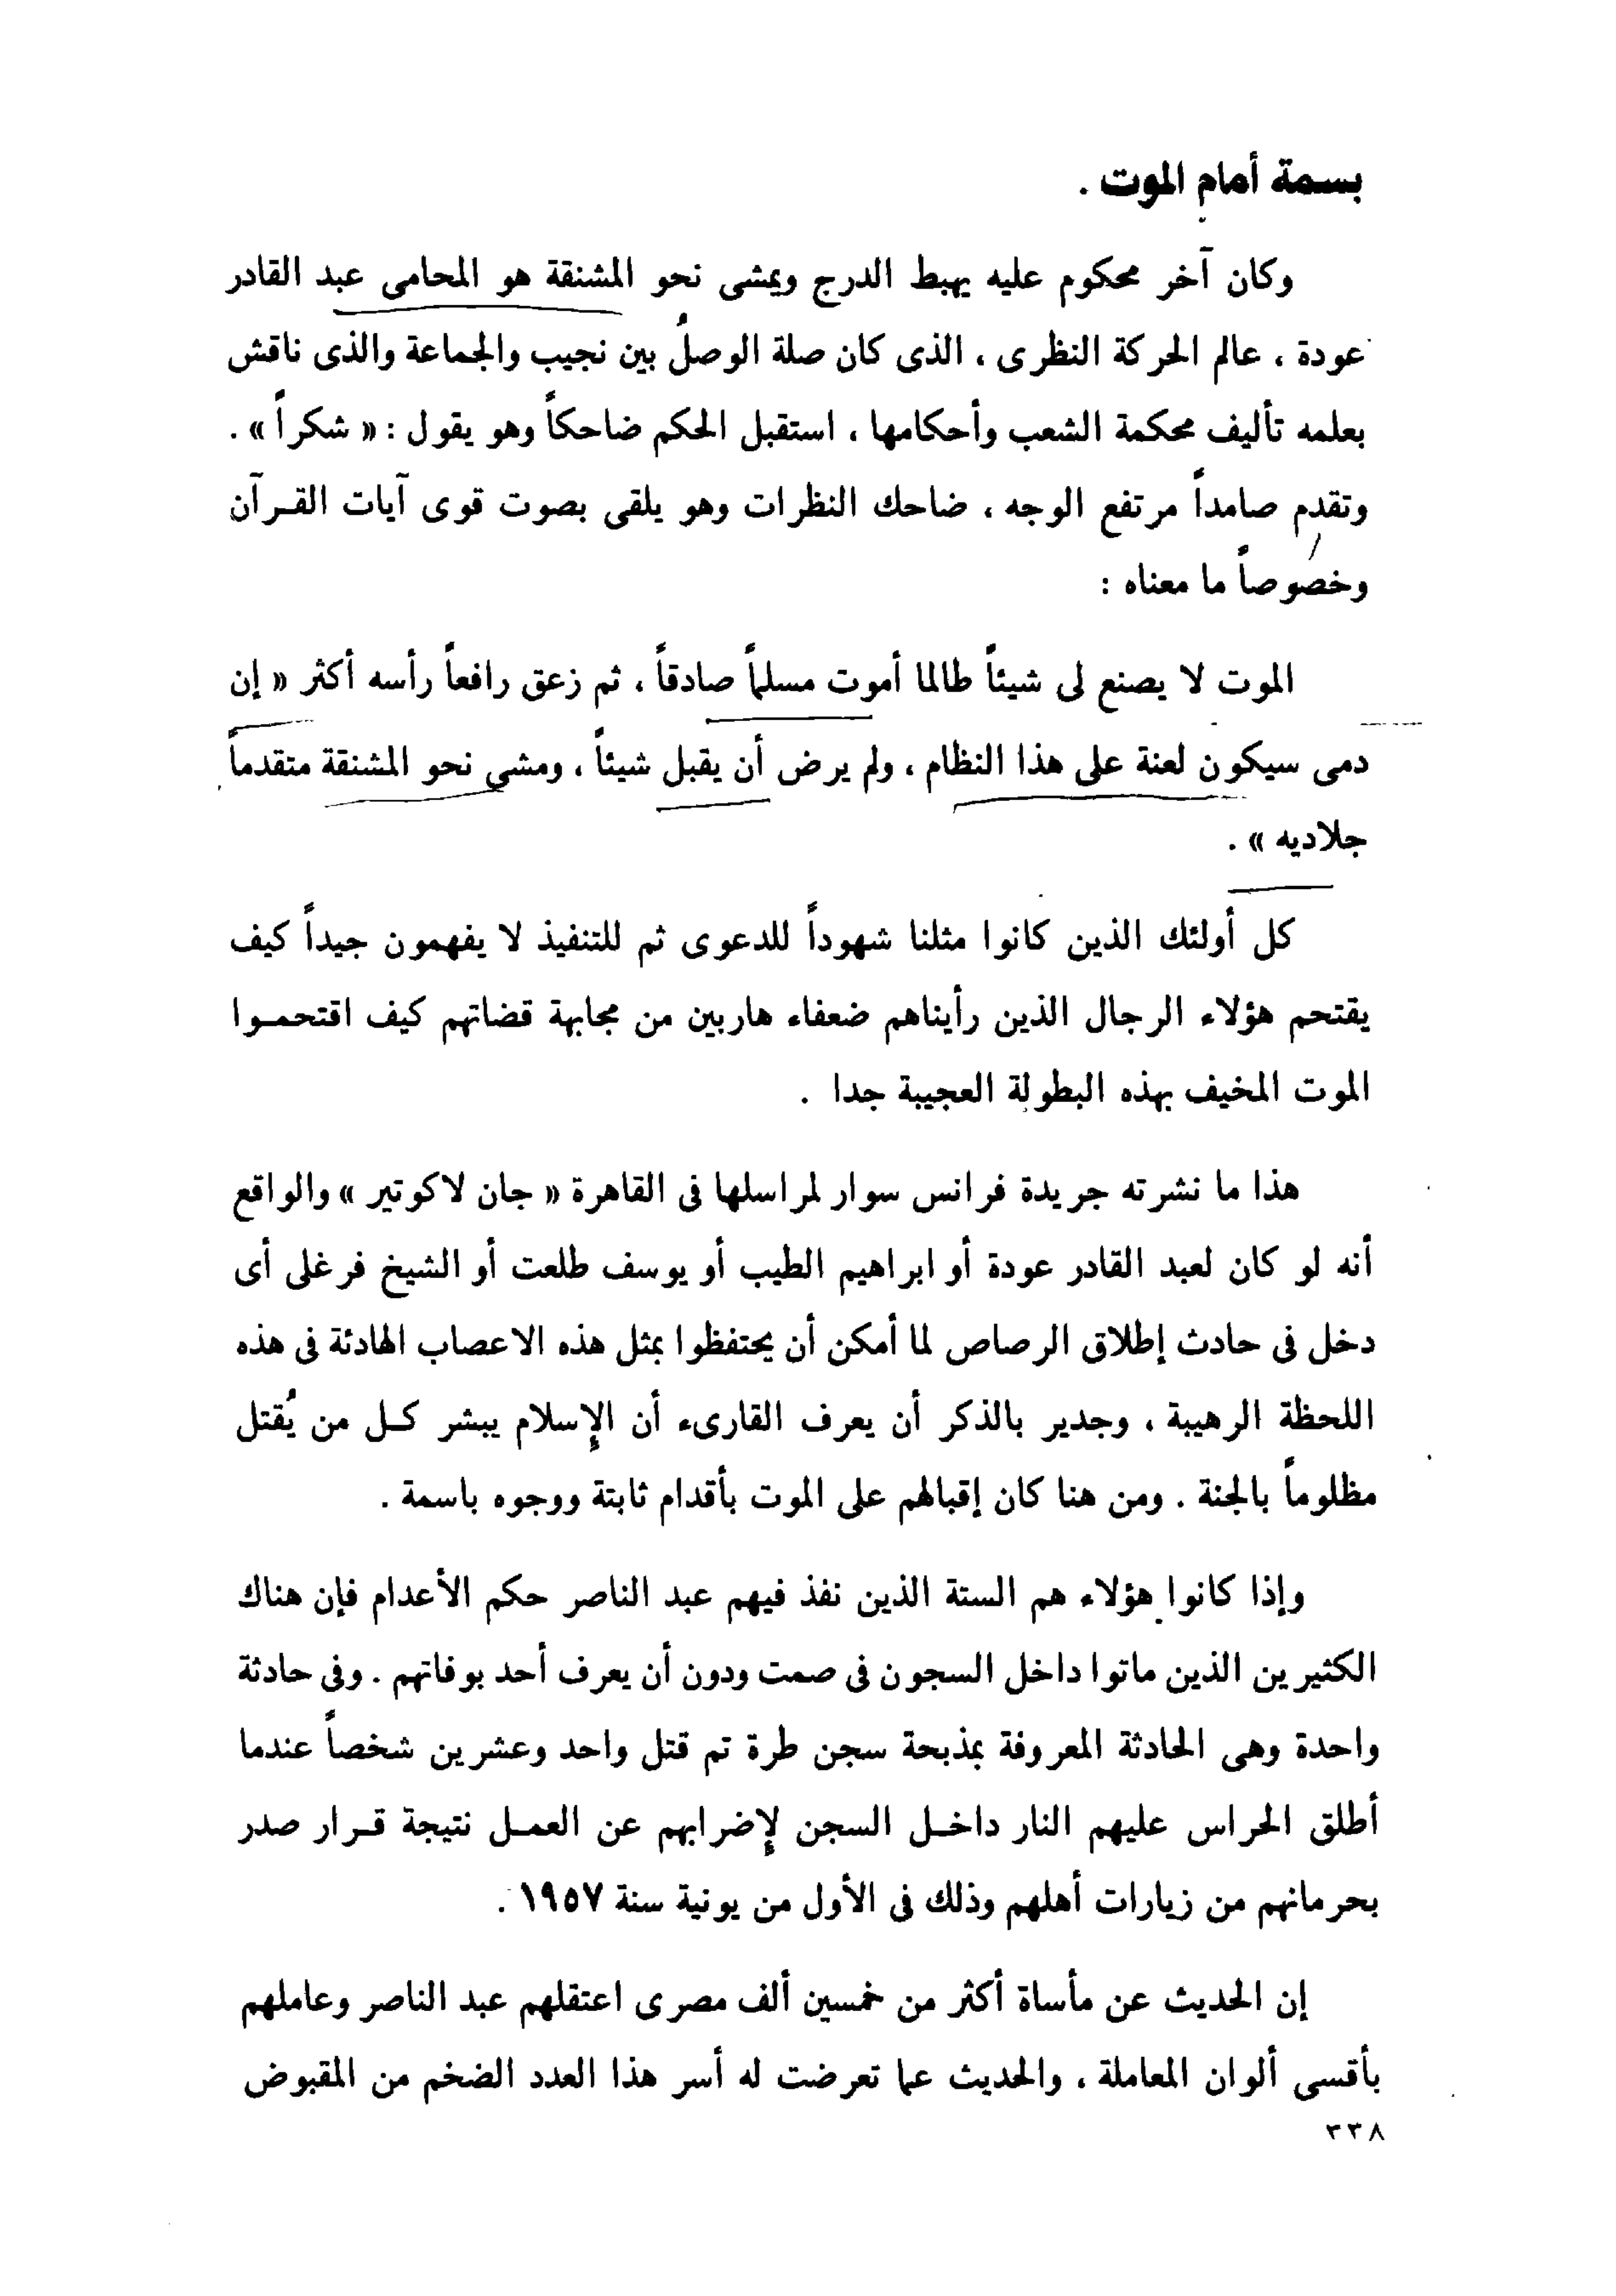 بسمة أمام الموت .
وكان آخر محكوم عليه يهبط الدرج ويمشى نحو المشنقة هو المحامى عبد القادر
عودة ، عالم الحركة النظرى ، الذى كان صلة الوصل بين نجيب والجماعة والذى ناقش
بعلمه تأليف محكمة الشعب وأحكامها ، استقبل الحكم ضاحكاً وهو يقول : « شكراً » .
وتقدم صامداً مرتفع الوجه ، ضاحك النظرات وهو يلقى بصوت قوى آيات القرآن
وخصوصاً ما معناه :
الموت لا يصنع لى شيئاً طالما أموت مسلماً صادقاً ، ثم زعق رافعاً رأسه أكثر « إن
دمى سيكون لعنة على هذا النظام ، ولم يرض أن يقبل شيئاً ، ومشى نحو المشنقة متقدماً
جلاديه » .
كل أولئك الذين كانوا مثلنا شهوداً للدعوى ثم للتنفيذ لا يفهمون جيداً كيف
يقتحم هؤلاء الرجال الذين رأيناهم ضعفاء هاربين من مجابهة قضاتهم كيف اقتحموا
الموت المخيف بهذه البطولة العجيبة جدا .
هذا ما نشرته جريدة فرانس سوار لمراسلها فى القاهرة « جان لاكوتير » والواقع
أنه لو كان لعبد القادر عودة أو ابراهيم الطيب أو يوسف طلعت أو الشيخ فرغلى أى
دخل فى حادث إطلاق الرصاص لما أمكن أن يحتفظوا بمثل هذه الاعصاب الهادئة فى هذه
اللحظة الرهيبة ، وجدير بالذكر أن يعرف القارىء أن الإسلام يبشر كل من يُقتل
مظلوماً بالجنة . ومن هنا كان إقبالهم على الموت بأقدام ثابتة ووجوه باسمة .
وإذا كانوا هؤلاء هم الستة الذين نفذ فيهم عبد الناصر حكم الأعدام فإن هناك
الكثيرين الذين ماتوا داخل السجون فى صمت ودون أن يعرف أحد بوفاتهم . وفى حادثة
واحدة وهى الحادثة المعروفة بمذبحة سجن طرة تم قتل واحد وعشرين شخصاً عندما
أطلق الحراس عليهم النار داخل السجن لإضرابهم عن العمل نتيجة قرار صدر
بحرمانهم من زيارات أهلهم وذلك فى الأول من يونية سنة ١٩٥٧ .
إن الحديث عن مأساة أكثر من خمسين ألف مصرى اعتقلهم عبد الناصر وعاملهم
بأقسى ألوان المعاملة ، والحديث عما تعرضت له أسر هذا العدد الضخم من المقبوض
٣٣٨